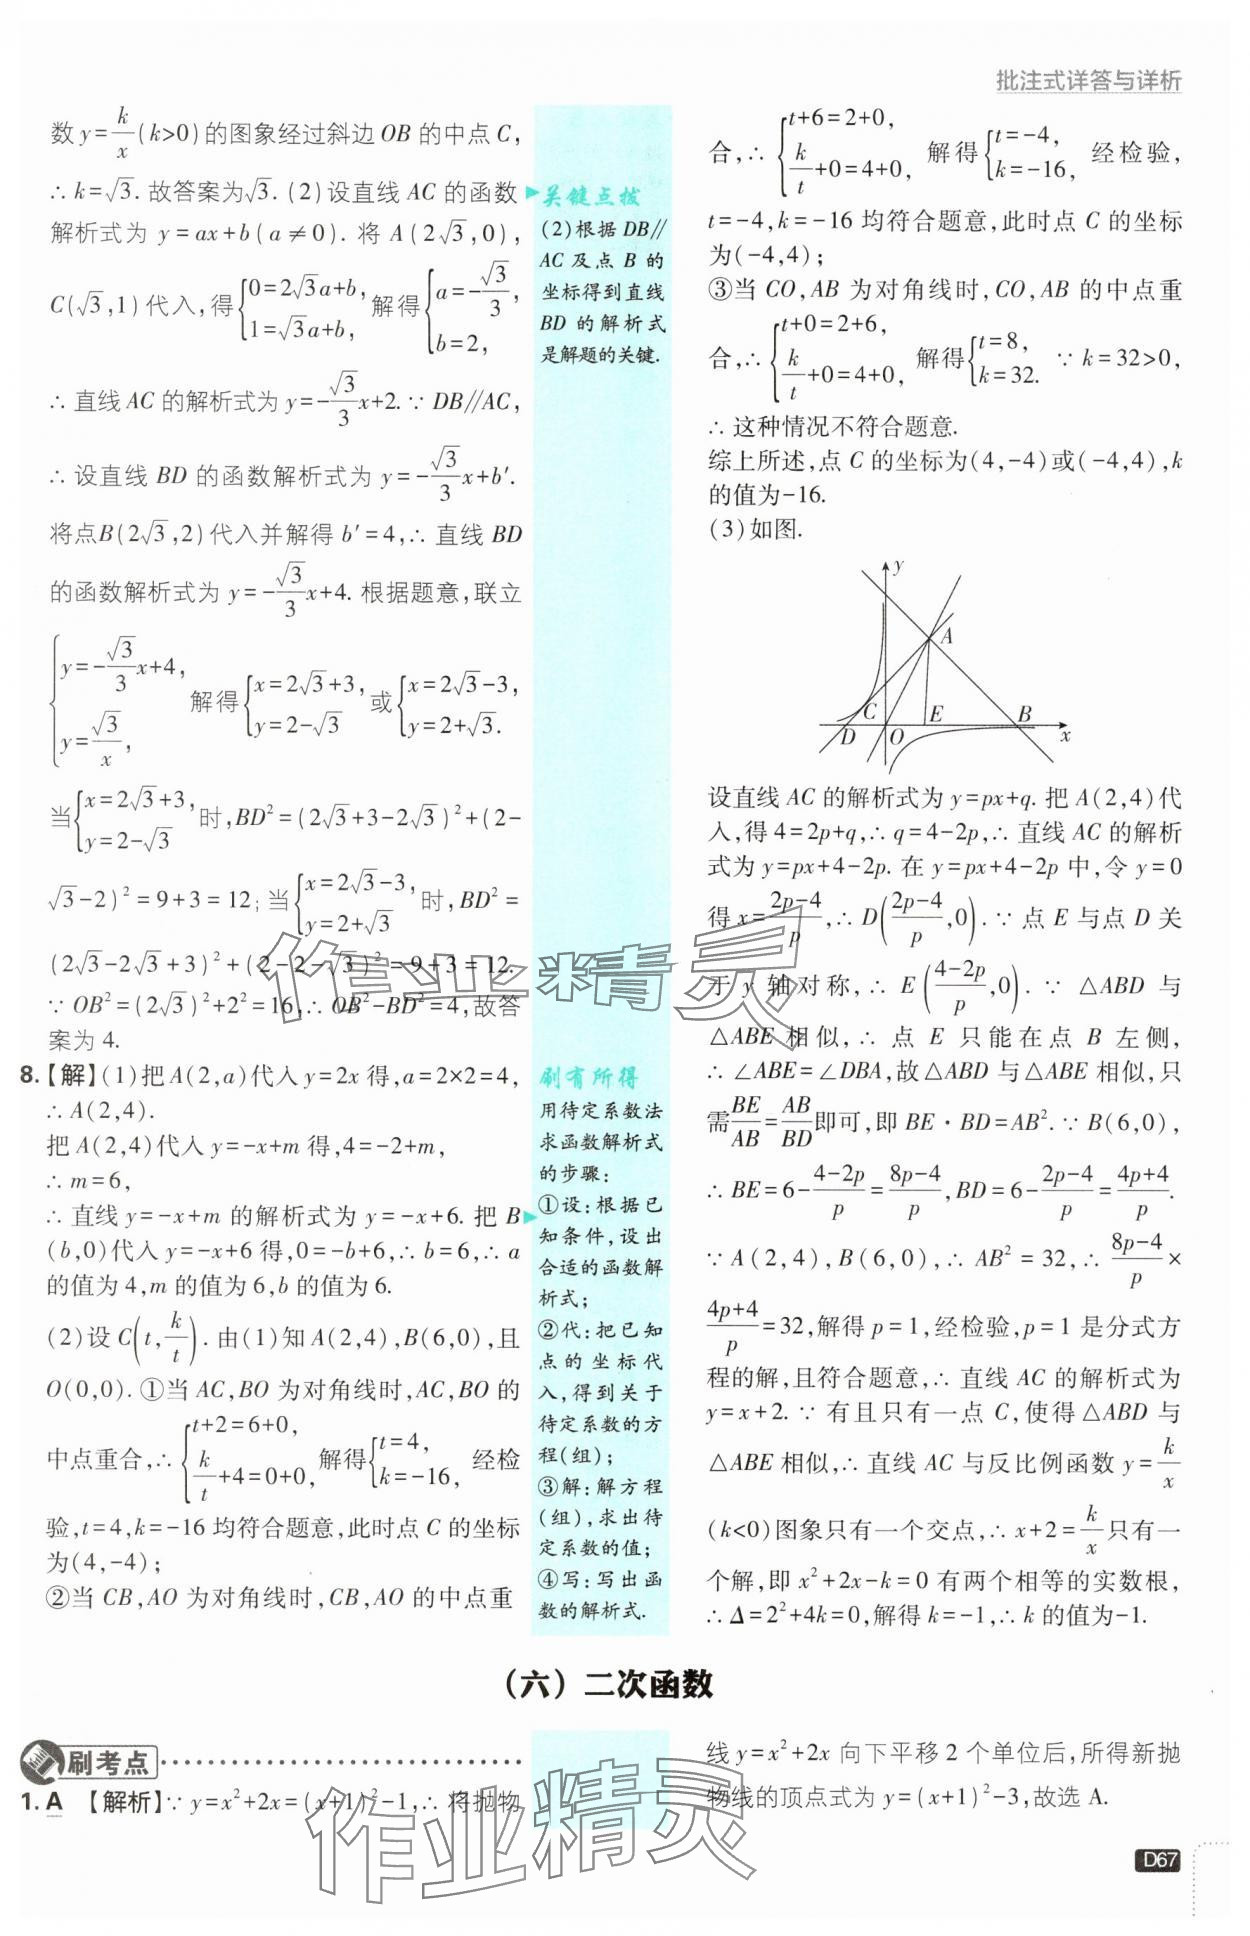 批注式详答与详析
数y=k/x(k>0)的图象经过斜边OB的中点C,
∴k=√3.故答案为√3.(2)设直线AC的函数
解析式为y=ax+b(a≠0).将A(2√3,0),
C(√3,1)代入,得{0=2√3a+b, 1=√3a+b, 解得{a=-√3/3, b=2,
∴直线AC的解析式为y=-√3/3x+2.∵DB∥AC,
∴设直线BD的函数解析式为y=-√3/3x+b′.
将点B(2√3,2)代入并解得b′=4,∴直线BD
的函数解析式为y=-√3/3x+4.根据题意,联立
{y=-√3/3x+4, y=√3/x, 解得{x=2√3+3, y=2-√3 或{x=2√3-3, y=2+√3.
当{x=2√3+3, y=2-√3 时,BD²=(2√3+3-2√3)²+(2-
√3-2)²=9+3=12;当{x=2√3-3, y=2+√3 时,BD²=
(2√3-2√3+3)²+(2-2-√3)²=9+3=12.
∵OB²=(2√3)²+2²=16,∴OB²-BD²=4,故答
案为4.
8.【解】(1)把A(2,a)代入y=2x得,a=2×2=4,
∴A(2,4).
把A(2,4)代入y=-x+m得,4=-2+m,
∴m=6,
∴直线y=-x+m的解析式为y=-x+6.把B
(b,0)代入y=-x+6得,0=-b+6,∴b=6,∴a
的值为4,m的值为6,b的值为6.
(2)设C(t,k/t).由(1)知A(2,4),B(6,0),且
O(0,0).①当AC,BO为对角线时,AC,BO的
中点重合,∴{t+2=6+0, k/t+4=0+0, 解得{t=4, k=-16, 经检
验,t=4,k=-16均符合题意,此时点C的坐标
为(4,-4);
②当CB,AO为对角线时,CB,AO的中点重
关键点拨
(2)根据DB∥
AC及点B的
坐标得到直线
BD的解析式
是解题的关键.
刷有所得
用待定系数法
求函数解析式
的步骤:
①设:根据已
知条件,设出
合适的函数解
析式;
②代:把已知
点的坐标代
入,得到关于
待定系数的方
程(组);
③解:解方程
(组),求出待
定系数的值;
④写:写出函
数的解析式.
合,∴{t+6=2+0, k/t+0=4+0, 解得{t=-4, k=-16, 经检验,
t=-4,k=-16均符合题意,此时点C的坐标
为(-4,4);
③当CO,AB为对角线时,CO,AB的中点重
合,∴{t+0=2+6, k/t+0=4+0, 解得{t=8, k=32. ∵k=32>0,
∴这种情况不符合题意.
综上所述,点C的坐标为(4,-4)或(-4,4),k
的值为-16.
(3)如图.
y
A
C
D
O
E
B
x
设直线AC的解析式为y=px+q.把A(2,4)代
入,得4=2p+q,∴q=4-2p,∴直线AC的解析
式为y=px+4-2p.在y=px+4-2p中,令y=0
得x=2p-4/p,∴D(2p-4/p,0).∵点E与点D关
于y轴对称,∴E(4-2p/p,0).∵△ABD与
△ABE相似,∴点E只能在点B左侧,
∴∠ABE=∠DBA,故△ABD与△ABE相似,只
需BE/AB=AB/BD即可,即BE·BD=AB².∵B(6,0),
∴BE=6-4-2p/p=8p-4/p,BD=6-2p-4/p=4p+4/p.
∵A(2,4),B(6,0),∴AB²=32,∴8p-4/p×
4p+4/p=32,解得p=1,经检验,p=1是分式方
程的解,且符合题意,∴直线AC的解析式为
y=x+2.∵有且只有一点C,使得△ABD与
△ABE相似,∴直线AC与反比例函数y=k/x
(k<0)图象只有一个交点,∴x+2=k/x只有一
个解,即x²+2x-k=0有两个相等的实数根,
∴Δ=2²+4k=0,解得k=-1,∴k的值为-1.
(六)二次函数
刷考点
1.A 【解析】∵y=x²+2x=(x+1)²-1,∴将抛物
线y=x²+2x向下平移2个单位后,所得新抛
物线的顶点式为y=(x+1)²-3,故选A.
作业精灵
作业精灵
D67